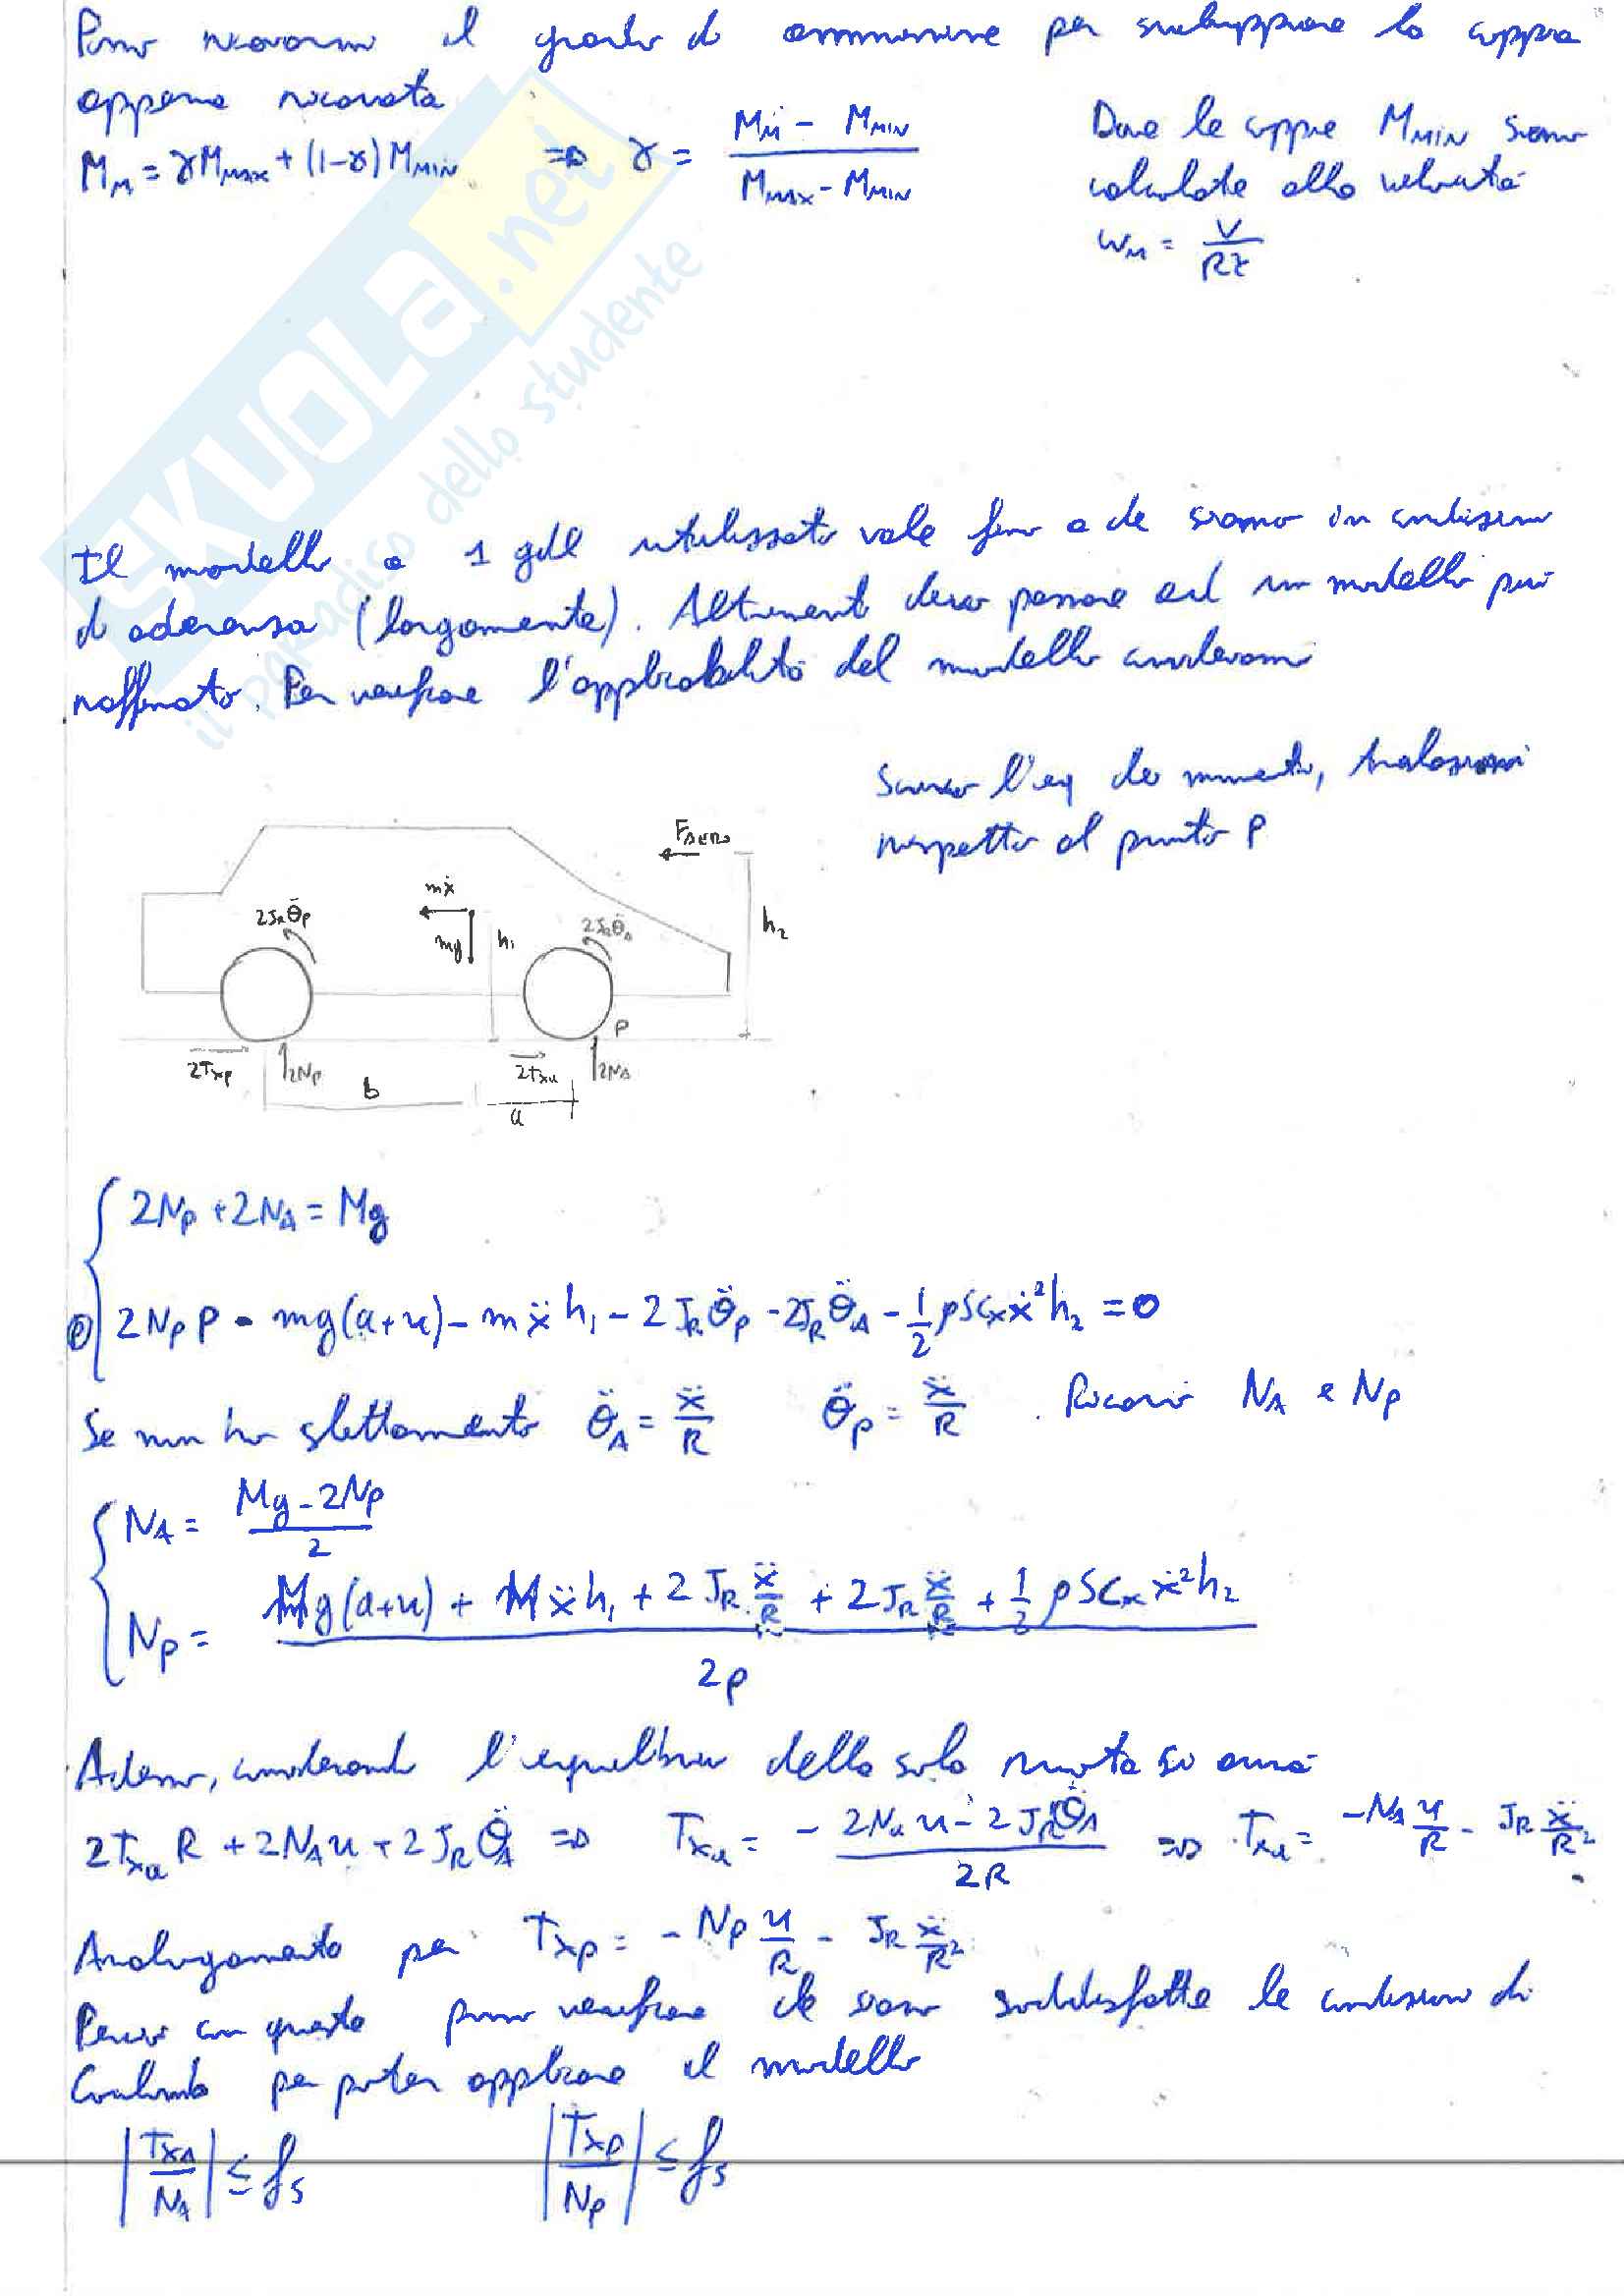 Posso ricavarmi il grado di ammissione per sviluppare la coppia
appena ricavata
M_M = γM_MAX + (1-γ) M_MIN => γ = (M_M - M_MIN) / (M_MAX - M_MIN)
Dove le coppie M_MIN siano
calcolate alla velocità
ω_M = V / Rτ
SKUOLA.net
il paradiso dello studente
Il modello a 1 gdl utilizzato vale fino a che siamo in condizioni
di aderenza (largamente). Altrimenti devo passare ad un modello più
raffinato. Per verificare l'applicabilità del modello consideriamo
Scrivo l'eq dei momenti,
rispetto al punto P
F_AERO
mẍ
2J_R θ̈_P
mg
h_1
2J_R θ̈_A
h_2
P
2T_xp
2N_P
2T_xa
2N_A
b
a
2N_P + 2N_A = Mg
2N_P p - mg(a+u) - mẍ h_1 - 2J_R θ̈_P - 2J_R θ̈_A - 1/2 ρSc_x ẋ² h_2 = 0
Se non ho slittamento θ̈_A = ẍ/R θ̈_P = ẍ/R . Ricavo N_A e N_P
N_A = (Mg - 2N_P) / 2
N_P = (Mg(a+u) + Mẍh_1 + 2J_R ẍ/R + 2J_R ẍ/R + 1/2 ρSc_x ẋ² h_2) / 2p
Adesso, considerando l'equilibrio della sola ruota si avrà
2T_xa R + 2N_A u + 2J_R θ̈_A => T_xa = - (2N_a u - 2J_R θ̈_A) / 2R => T_xa = -N_A u/R - J_R ẍ/R²
Analogamente per T_xp = - N_P u/R - J_R ẍ/R²
Perciò con queste posso verificare che siano soddisfatte le condizioni di
Coulomb per poter applicare il modello
|T_XA / N_A| ≤ f_s |T_XP / N_P| ≤ f_s